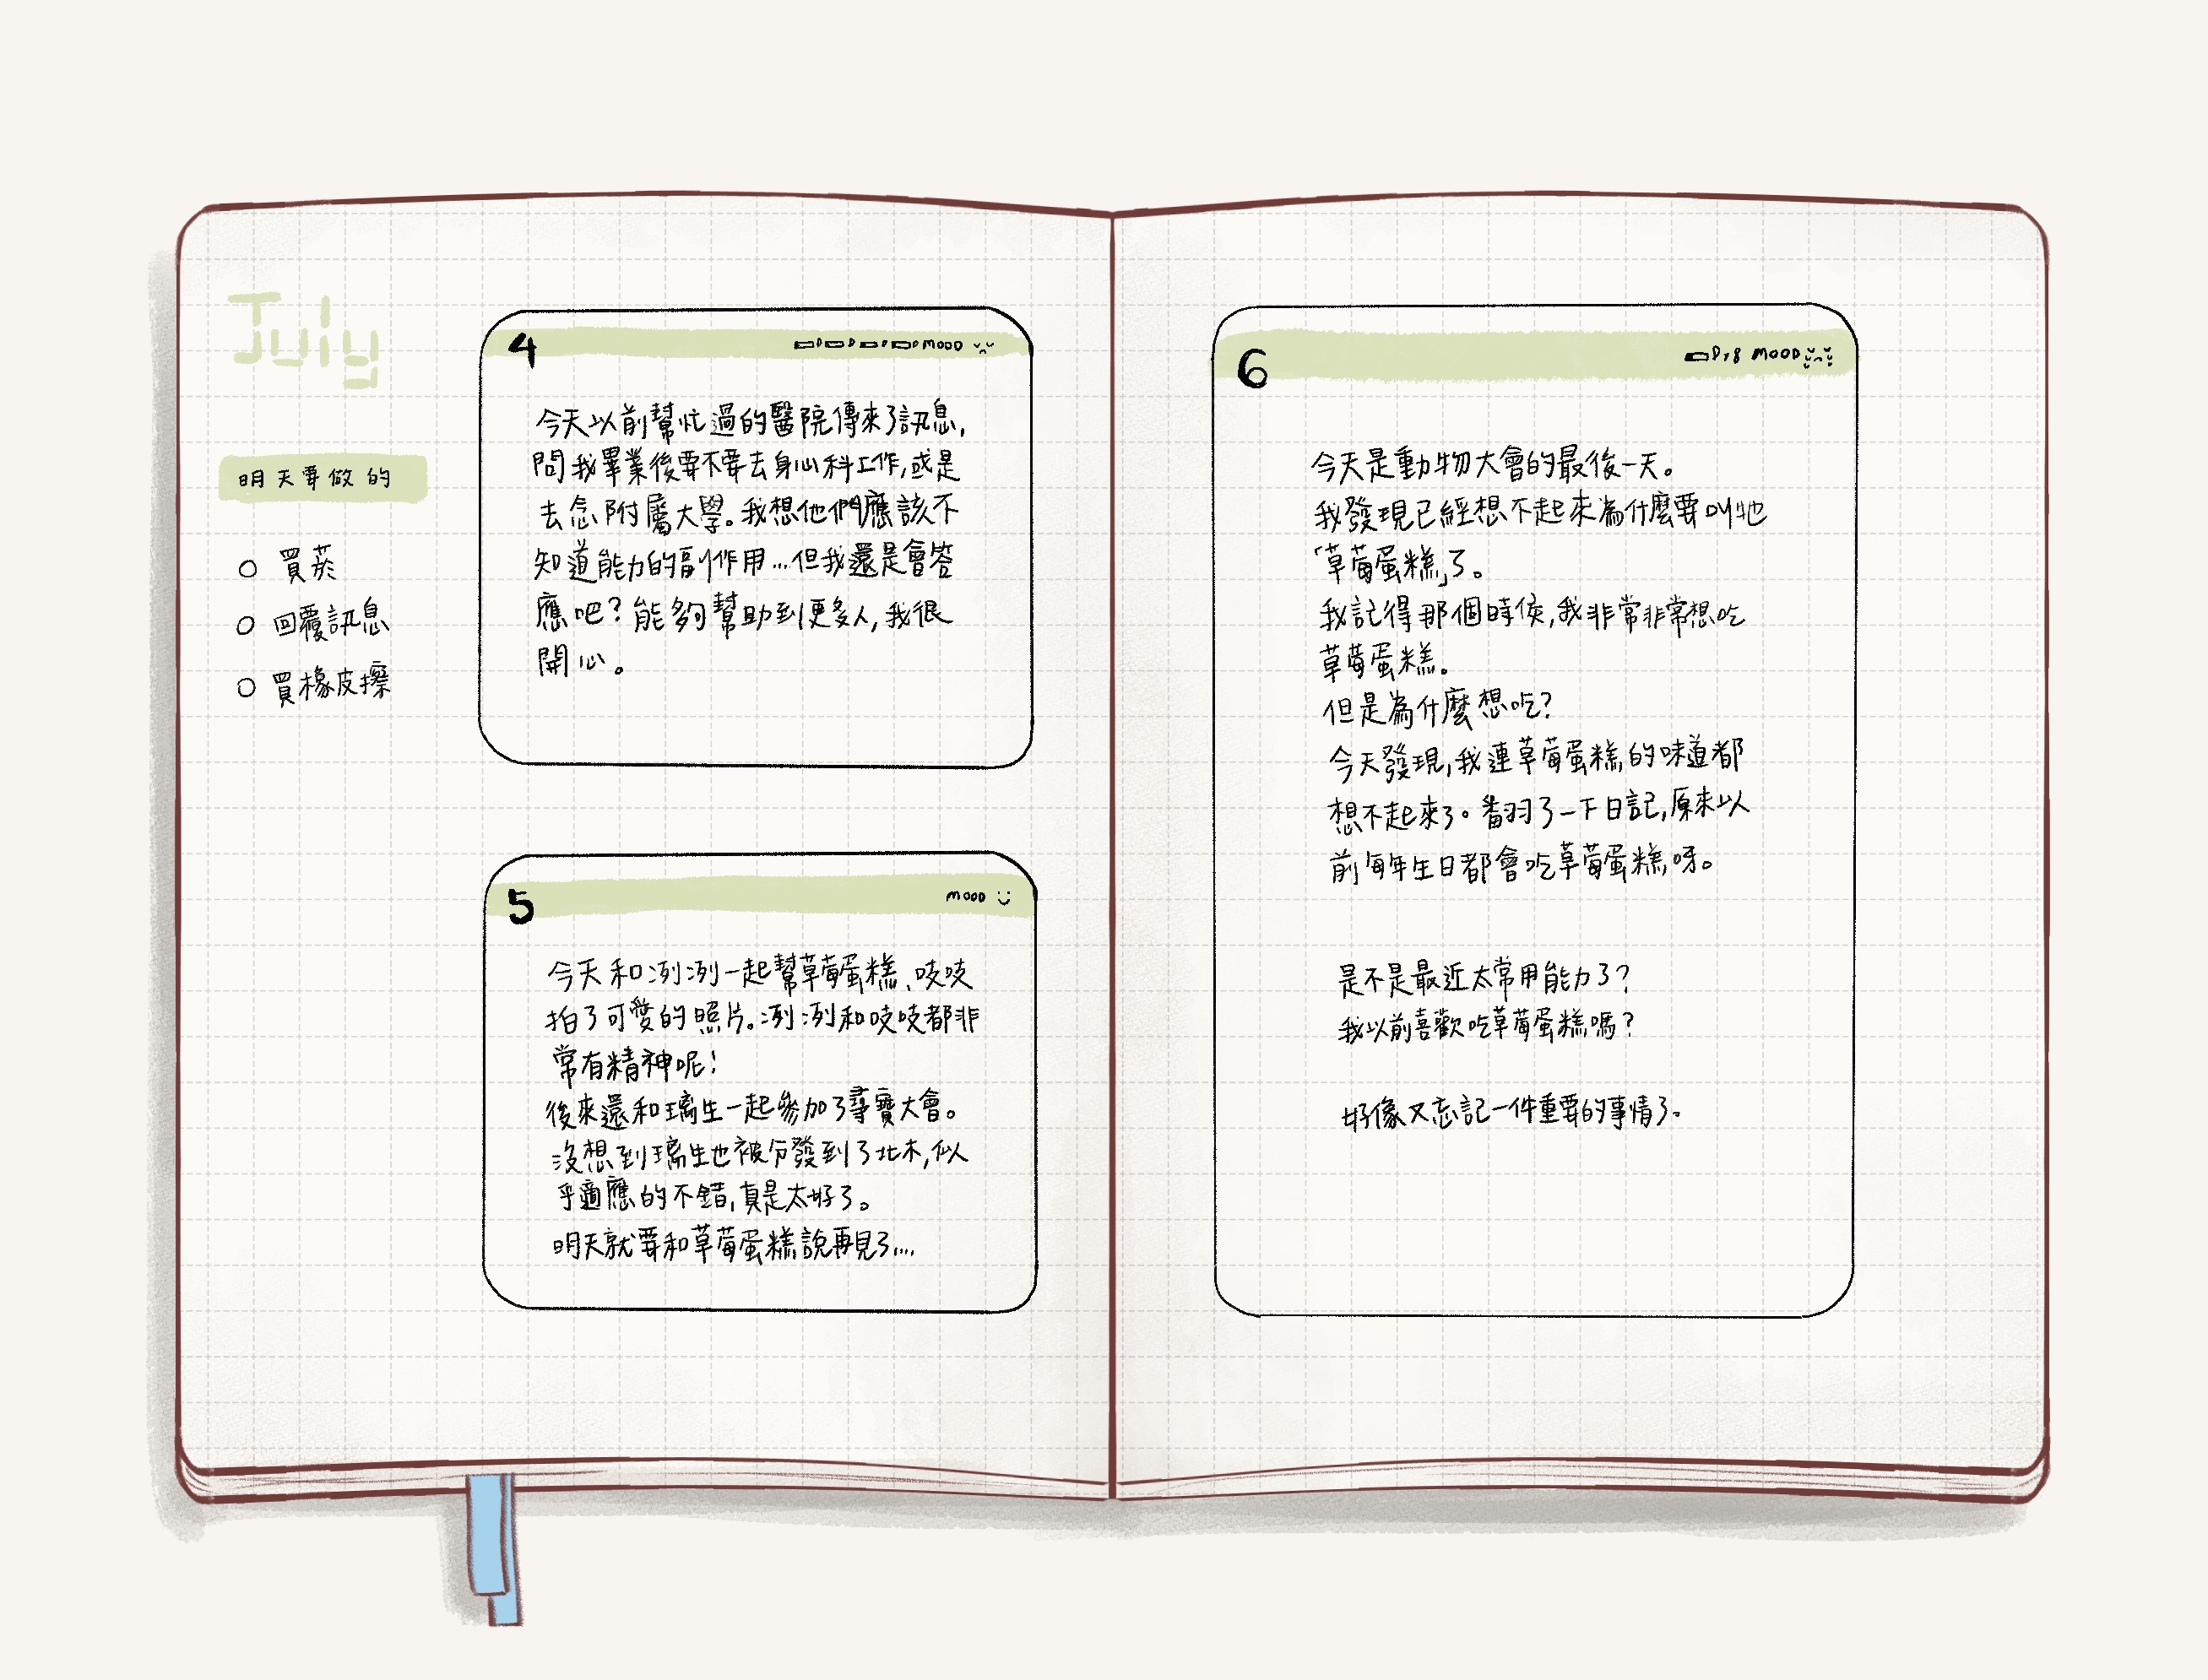 July
明天要做的
買菸
回覆訊息
買橡皮擦
4
MOOD
今天以前幫忙過的醫院傳來了訊息,
問我畢業後要不要去身心科工作,或是
去念附屬大學。我想他們應該不
知道能力的副作用...但我還是會答
應吧?能夠幫助到更多人,我很
開心。
5
MOOD
今天和冽冽一起幫草莓蛋糕、吱吱
拍了可愛的照片。冽冽和吱吱都非
常有精神呢!
後來還和璃生一起參加了尋寶大會。
沒想到璃生也被分發到了北木,似
乎適應的不錯,真是太好了。
明天就要和草莓蛋糕說再見了...
6
MOOD
今天是動物大會的最後一天。
我發現已經想不起來為什麼要叫牠
「草莓蛋糕」了。
我記得那個時侯,我非常非常想吃
草莓蛋糕。
但是為什麼想吃?
今天發現,我連草莓蛋糕的味道都
想不起來了。翻了一下日記,原來以
前每年生日都會吃草莓蛋糕呀。
是不是最近太常用能力了?
我以前喜歡吃草莓蛋糕嗎?
好像又忘記一件重要的事情了。